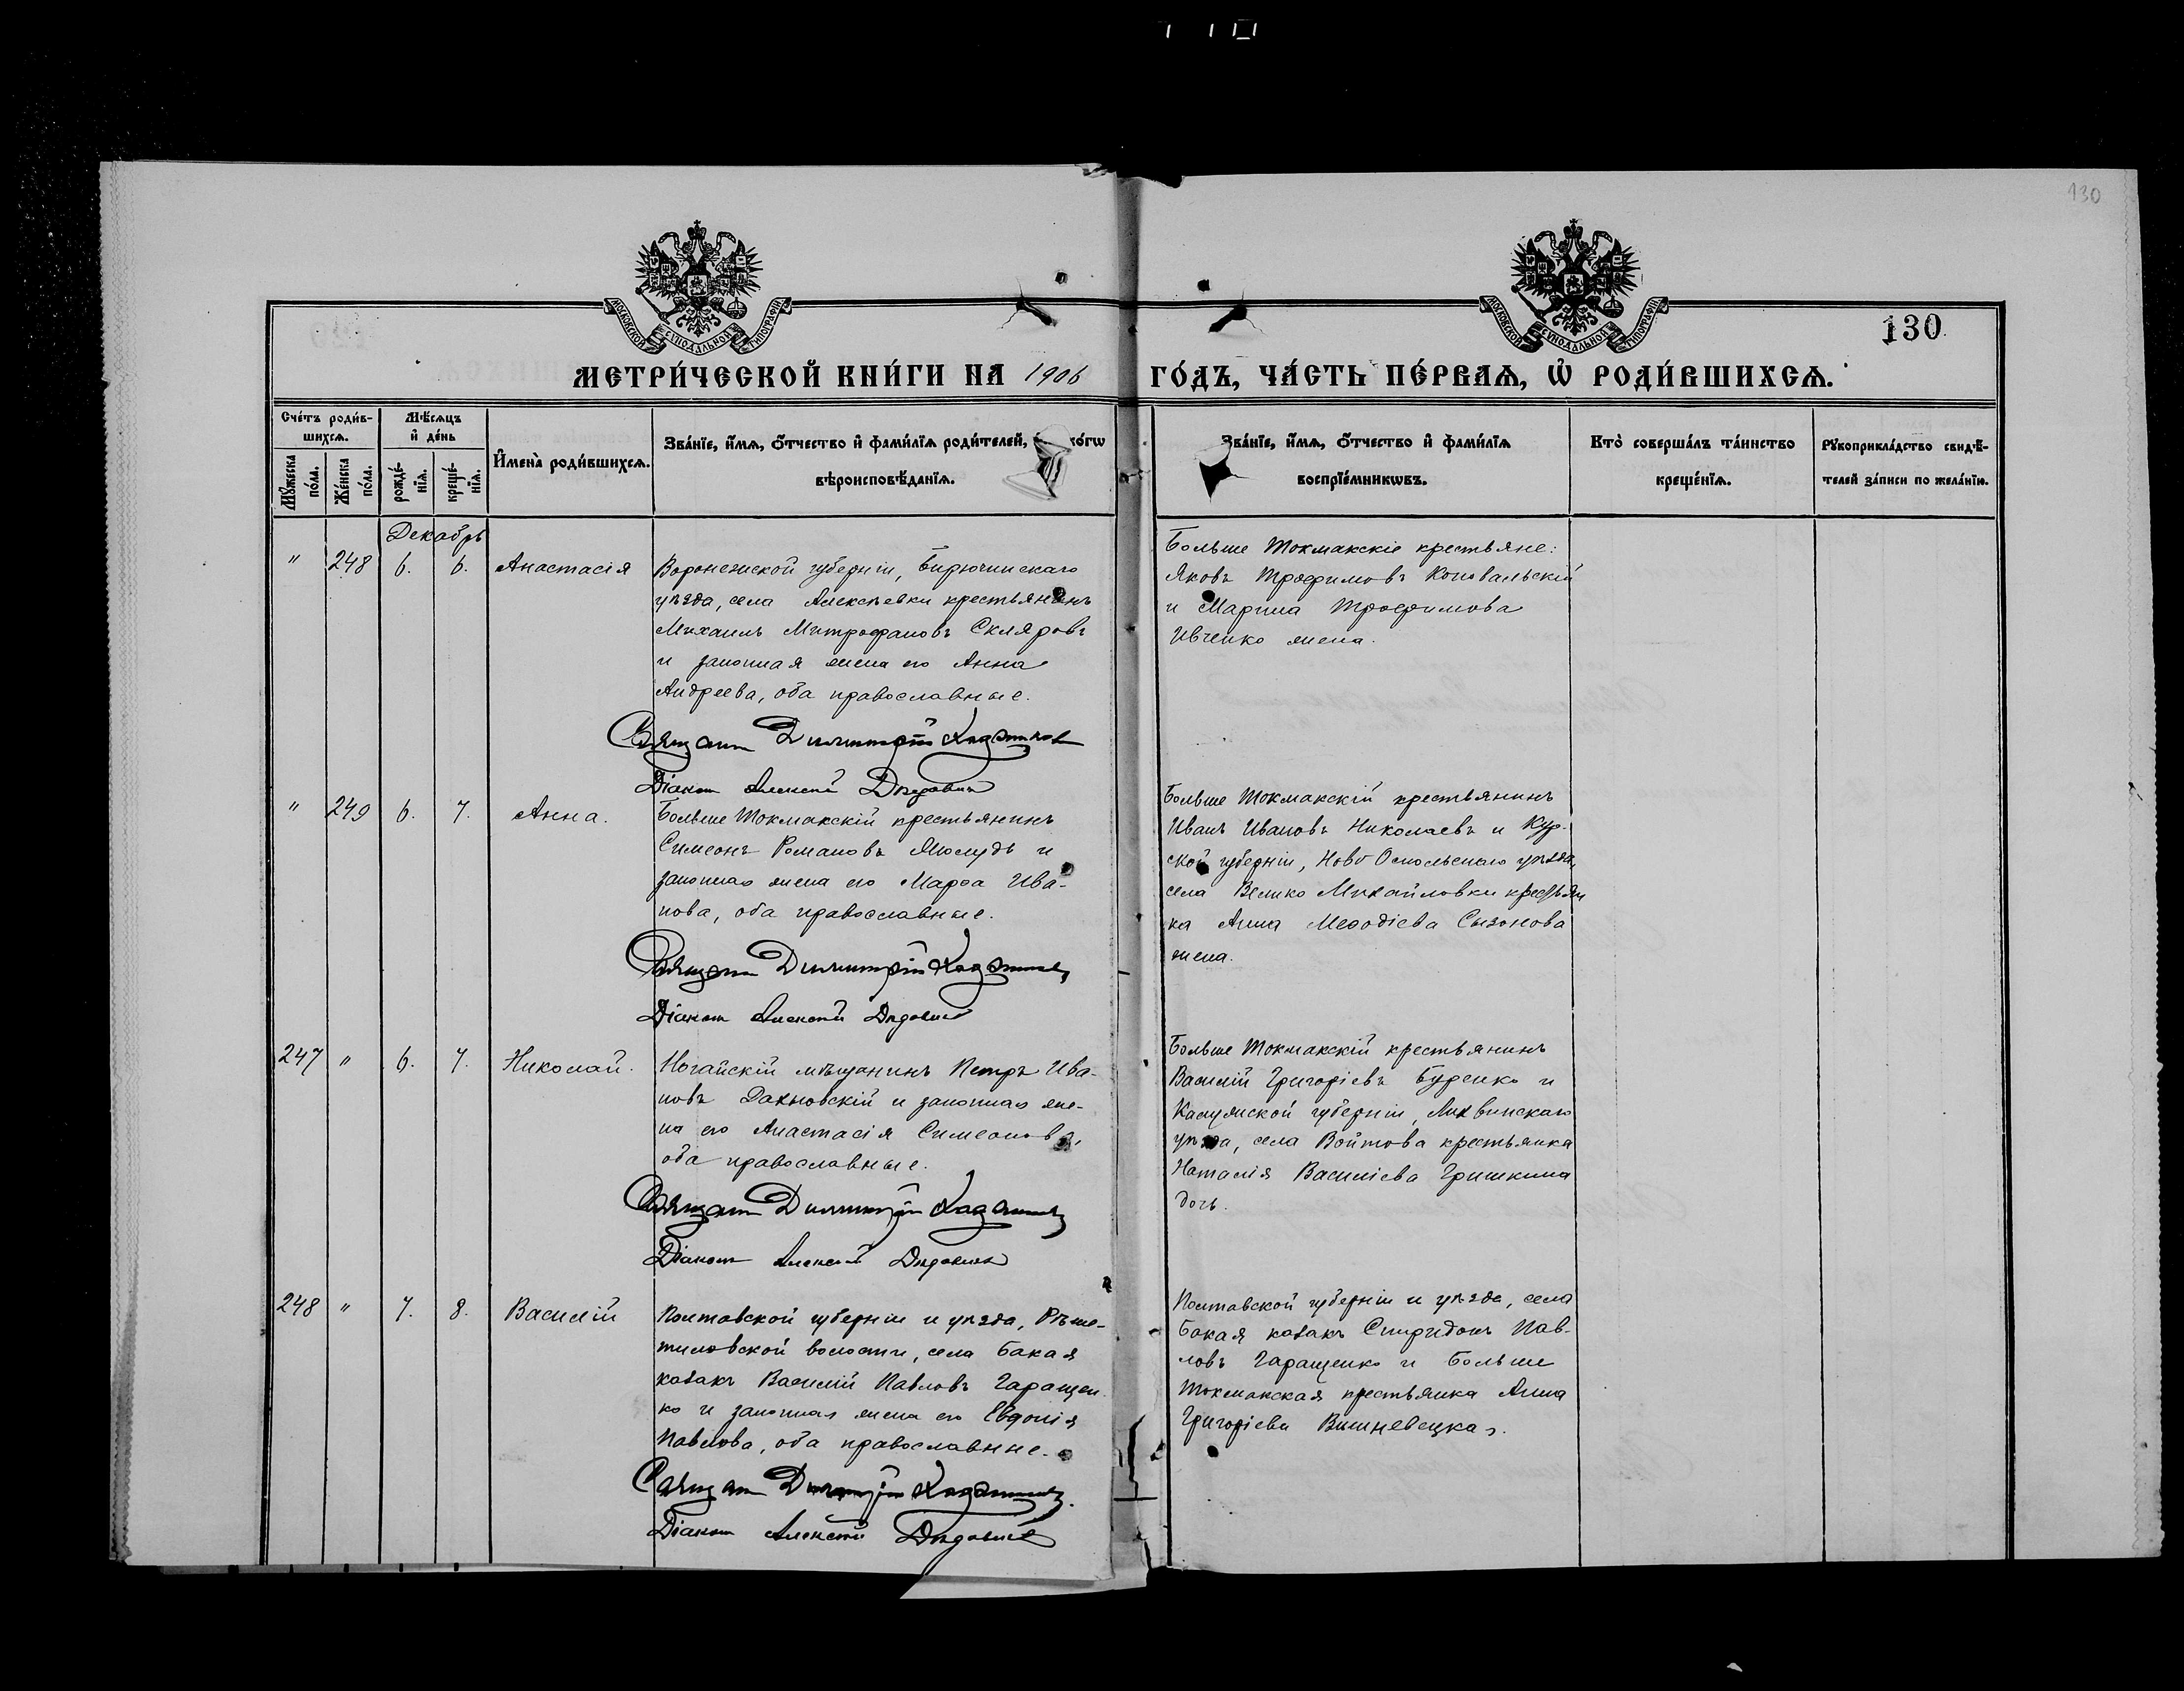 130
130
МОСКОВСКОЙ СУНОДАЛЬНОЙ ТИПОГРАФІИ
МОСКОВСКОЙ СУНОДАЛЬНОЙ ТИПОГРАФІИ
МЕТРИ́ЧЕСКОЙ КНИ́ГИ НА 1906 ГО́ДЪ, ЧА́СТЬ ПЕ́РВАѦ, Ѽ РОДИ́ВШИХСѦ.
Сче́тъ роди́в-
шихсѧ.
Мꙋ́жеска по́ла.
Же́нска по́ла.
Мѣ́сѧцъ
и҆ де́нь
рожде́-
нїѧ.
креще́-
нїѧ.
И҆мена̀ роди́вшихсѧ.
Зва́нїе, и҆́мѧ, ѻ҆́тчество и҆ фами́лїѧ роди́телей,
вѣроисповѣ́данїѧ.
Зва́нїе, и҆́мѧ, ѻ҆́тчество и҆ фами́лїѧ
воспрїе́мникѡвъ.
Кто̀ соверша́лъ та́инство
креще́нїѧ.
Рꙋкоприкла́дство свидѣ́-
телей за́писи по жела́нїю.
Декабрь
" 248 6. 6. Анастасія
Воронежской губерніи, Бирюченскаго
уѣзда, села Алексѣевки крестьянинъ
Михаилъ Митрофановъ Скляровъ
и законная жена его Анна
Андреева, оба православные.
Больше Токмакскіе крестьяне:
Яковъ Трофимовъ Коновальскій
и Марина Трофимова
Ивченко жена.
Священ Димитрій
Діаконъ Алексій
" 249 6. 7. Анна.
Больше Токмакскій крестьянинъ
Симеонъ Романовъ и
законная жена его Марѳа Ива-
нова, оба православные.
Больше Токмакскій крестьянинъ
Иванъ Ивановъ Николаевъ и Кур-
ской губерніи, Ново Оскольскаго уѣзда,
села Велико Михайловки крестьян
ка Анна Меѳодіева Сызонова
жена.
Священ Димитрій
Діаконъ Алексій
247 " 6. 7. Николай.
Ногайскій мѣщанинъ Петръ Ива-
новъ Дахновскій и законная же-
на его Анастасія Симеонова,
оба православные.
Больше Токмакскій крестьянинъ
Василій Григоріевъ Буренко и
Калужской губерніи, Лихвинскаго
уѣзда, села Войтова крестьянка
Наталія Василіева Гришкина
дочь.
Священ Димитрій
Діаконъ Алексій
248 " 7. 8. Василій
Полтавской губерніи и уѣзда, Рѣше-
тиловской волости, села Бакая
козакъ Василій Павловъ Гаращен
ко и законная жена его Евдокія
Павлова, оба православные.
Полтавской губерніи и уѣзда, села
Бакая козакъ Спиридонъ Пав-
ловъ Гаращенко и Больше
Токмакская крестьянка Анна
Григоріева Вишневецкая.
Священ Димитрій
Діаконъ Алексій